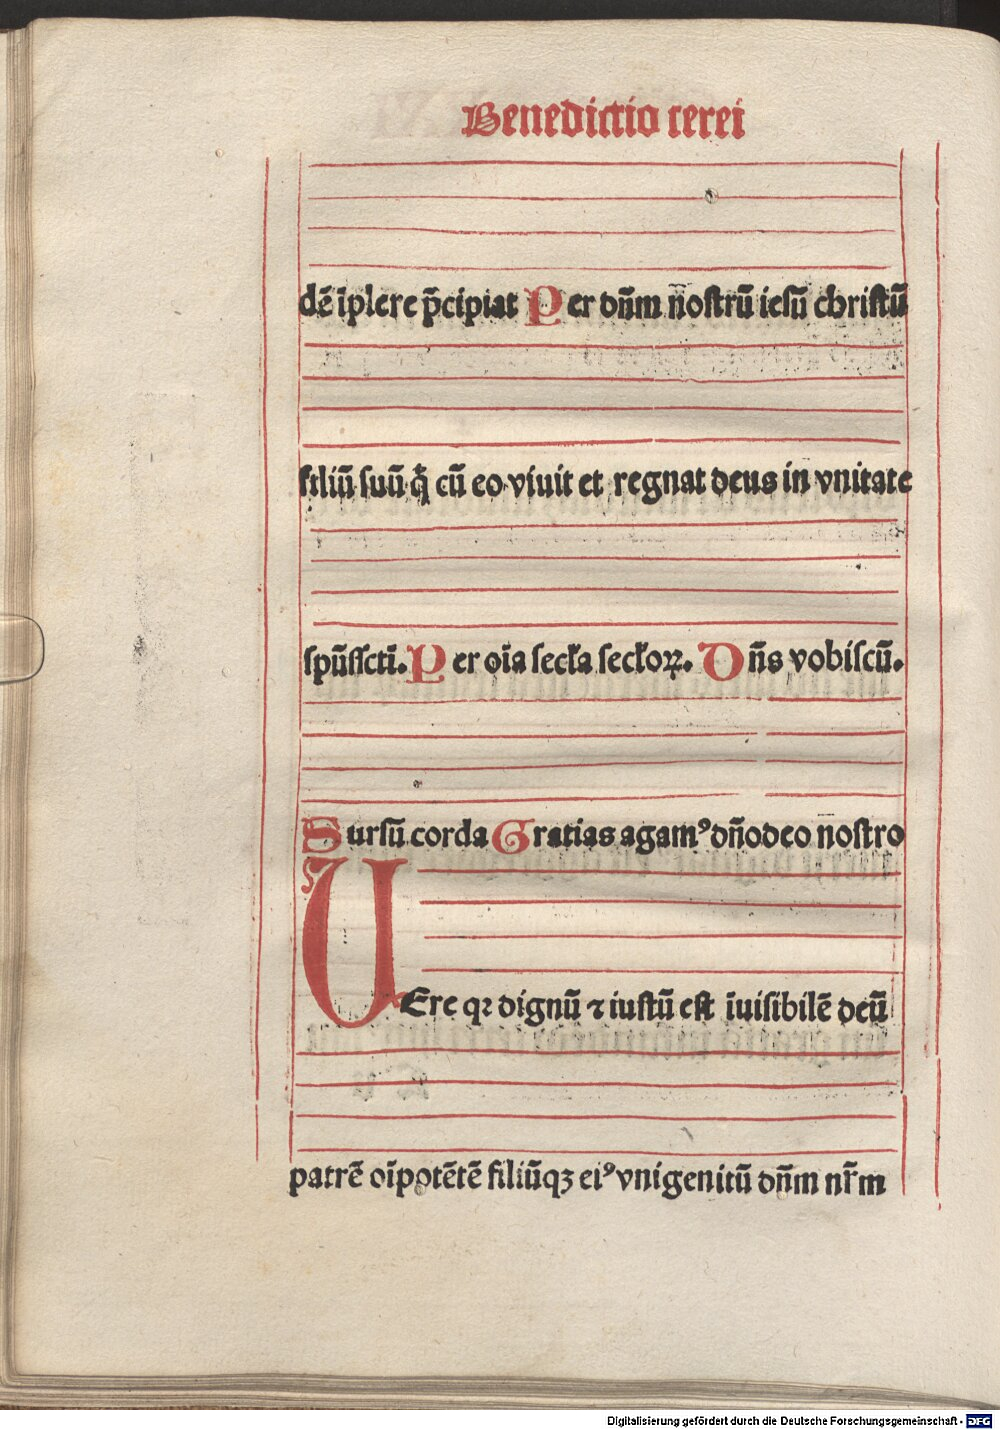 Benedictio cerei
dē īplere p̄cipiat Per dn̄m nostrū iesū christū
filiū suū q̄ cū eo viuit et regnat deus in vnitate
spūssctī. Per oīa secła secłoꝝ. Dn̄s vobiscū.
Sursū corda Gratias agamꝰ dn̄o deo nostro
UEre qꝛ dignū ⁊ iustū est īuisibilē deū
patrē oīpotētē filiūqꝫ eiꝰ vnigenitū dn̄m nr̄m
Digitalisierung gefördert durch die Deutsche Forschungsgemeinschaft - DFG